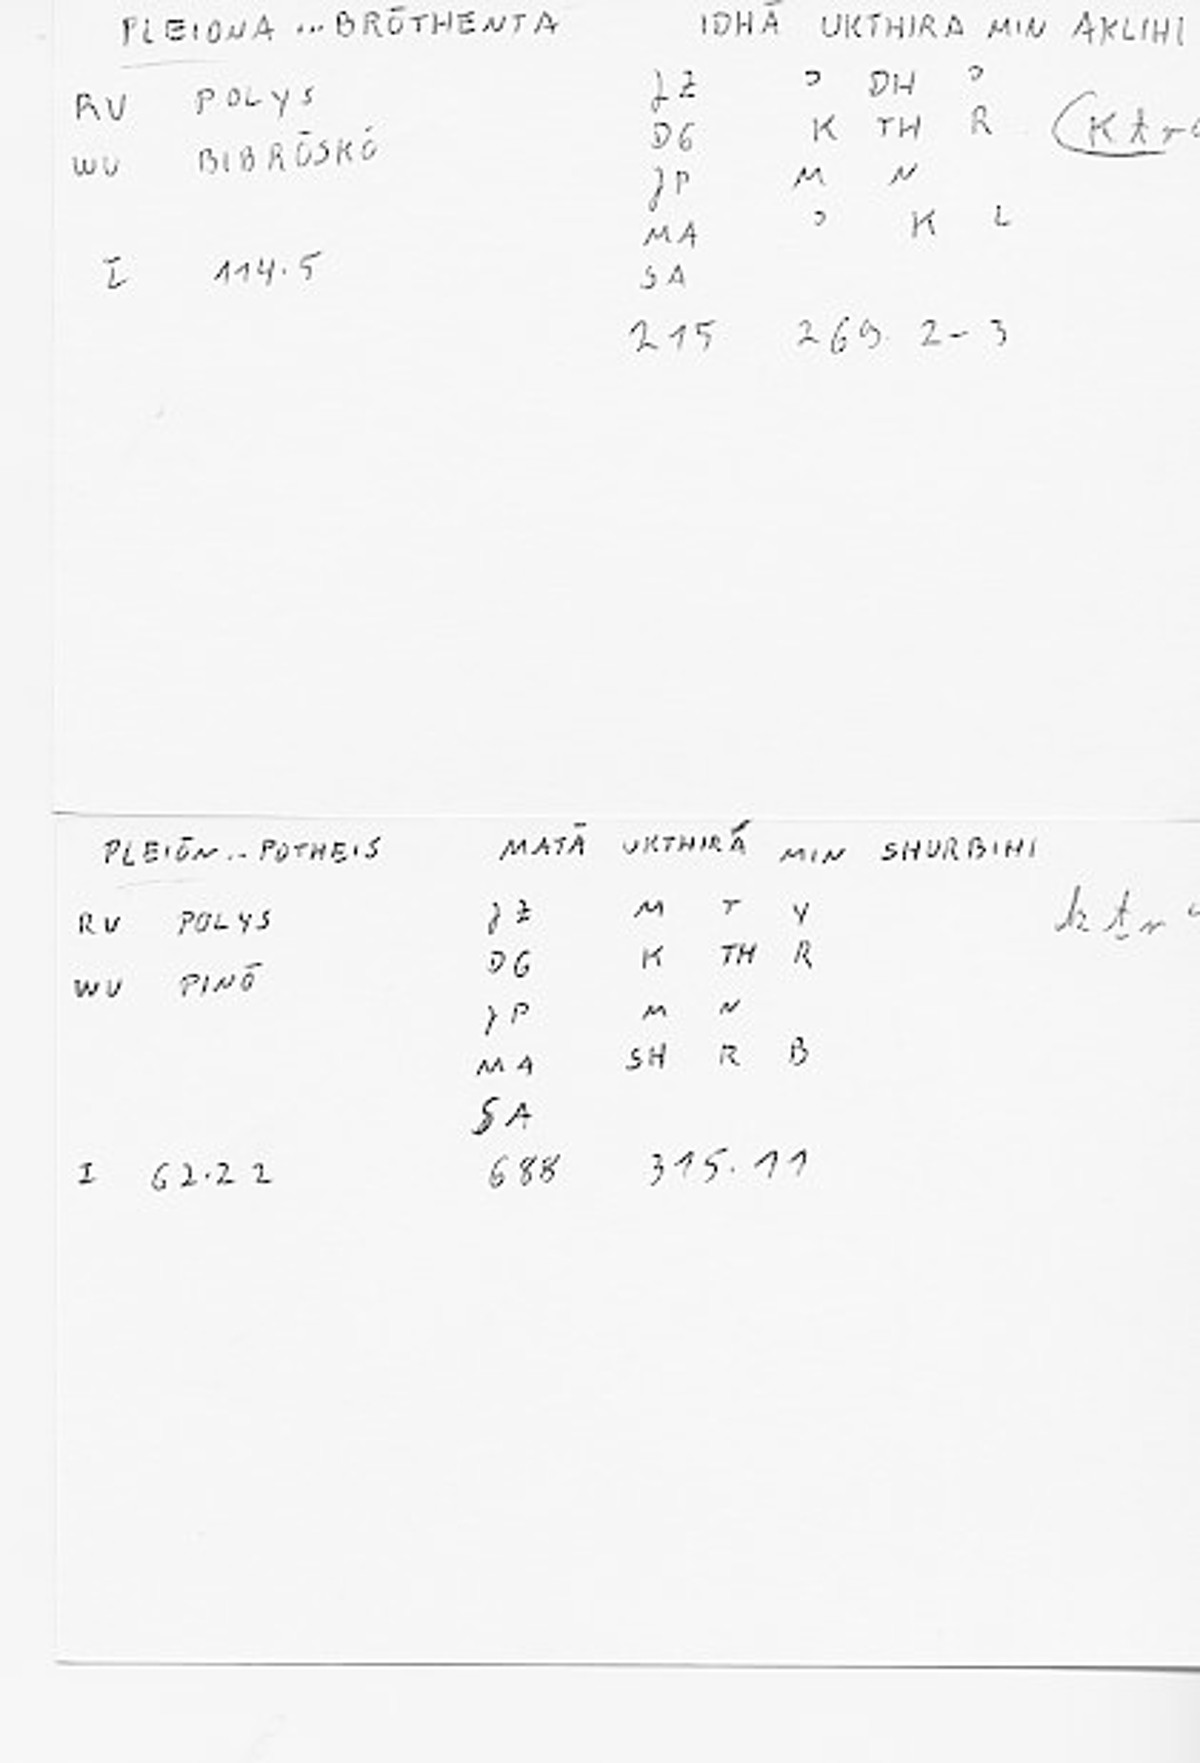 PLEIONA ... BRŌTHENTA IDHĀ UKTHIRA MIN AKLIHI
RU POLYS JZ ɔ DH ɔ
WU BIBRŌSKŌ DG K TH R (Ktr
JP M N
MA ɔ K L
I 114.5 SA
215 269. 2-3
PLEIŌN .. POTHEIS MATĀ UKTHIRĀ MIN SHURBIHI
RU POLYS JZ M T Y ktr
WU PINŌ DG K TH R
JP M N
MA SH R B
SA
I 62.22 688 315.11